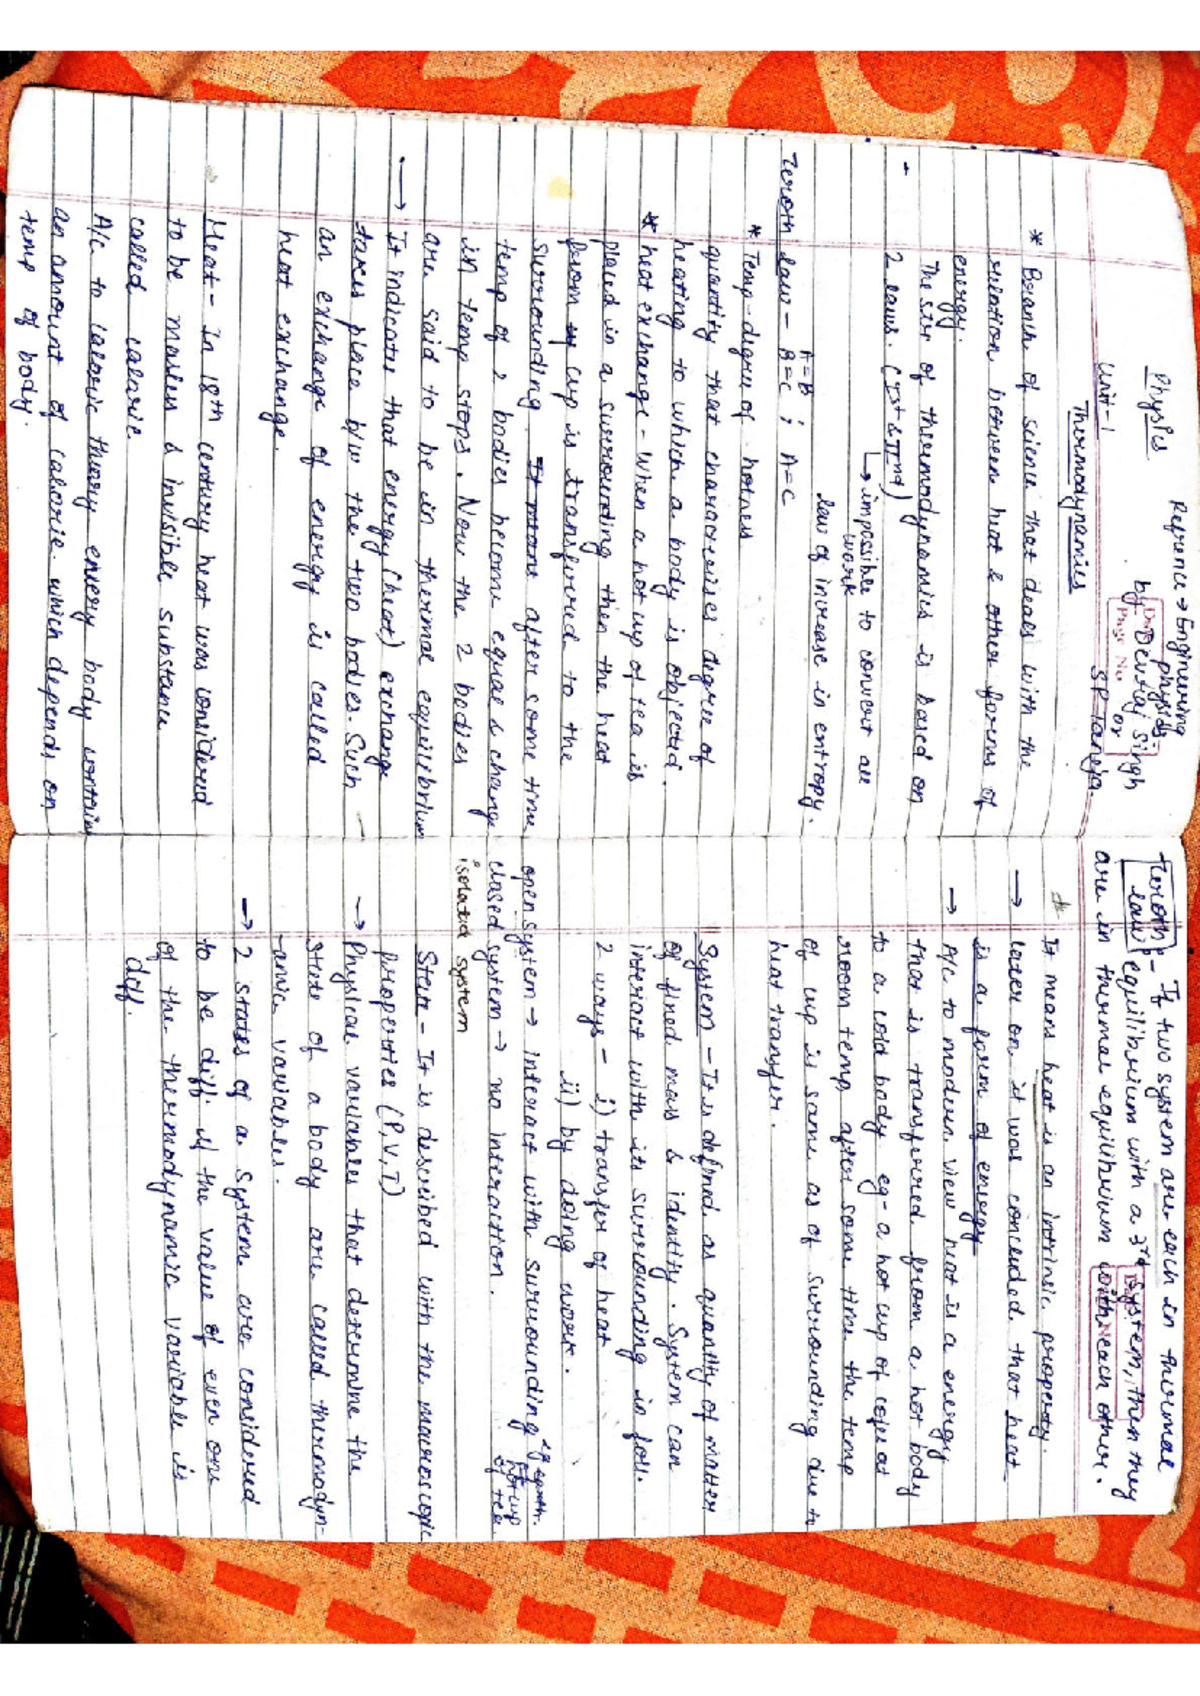 Physics
Reference → Engineering
physics
by Devraj Singh
or
SP Taneja
Date
Page No
Unit-1
Thermodynamics
* Branch of science that deals with the
relation between heat & other forms of
energy.
The str of thermodynamics is based on
2 laws. (Ist & IInd)
↳ impossible to convert all
work
law of increase in entropy.
Zeroth law - A=B
B=C ; A=C
* Temp - degree of hotness
quantity that characterises degree of
heating to which a body is objected.
* heat exchange - When a hot cup of tea is
placed in a surrounding then the heat
from cup is transfered to the
surrounding. It means after some time
temp of 2 bodies become equal & change
in temp stops. Now the 2 bodies
are said to be in thermal equilibrium
→ It indicates that energy (heat) exchange
takes place b/w the two bodies. Such
an exchange of energy is called
heat exchange.
Heat - In 18th century heat was considered
to be masless & invisible substance
called calorie.
A/c to caloric theory every body contain
an amount of calorie which depends on
temp of body.
Zeroth law - If two system are each in thermal
equilibrium with a 3rd system, then they
are in thermal equilibrium with each other.
* It means heat is an intrinsic property.
→ later on, it was concluded that heat
is a form of energy
→ A/c to modern view heat is a energy
that is transfered from a hot body
to a cold body eg - a hot cup of cofee at
room temp after some time the temp
of cup is same as of surrounding due to
heat transfer.
System - It is defined as quantity of matter
of fixed mass & identity. System can
interact with its surrounding in foll.
2 ways - i) transfer of heat
ii) by doing work.
open system → interact with surrounding eg earth.
hot cup
of tea
closed system → no interaction.
isolated system
State - It is described with the macroscopic
properties (P,V,T)
→ Physical variables that determine the
state of a body are called thermodyn-
-amic variables.
→ 2 states of a system are considered
to be diff. if the value of even one
of the thermodynamic variable is
diff.